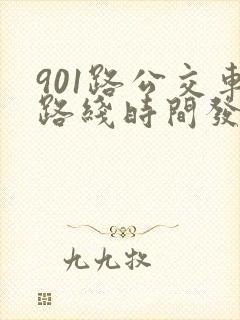 901路公交車
路綫時間發
九九牧